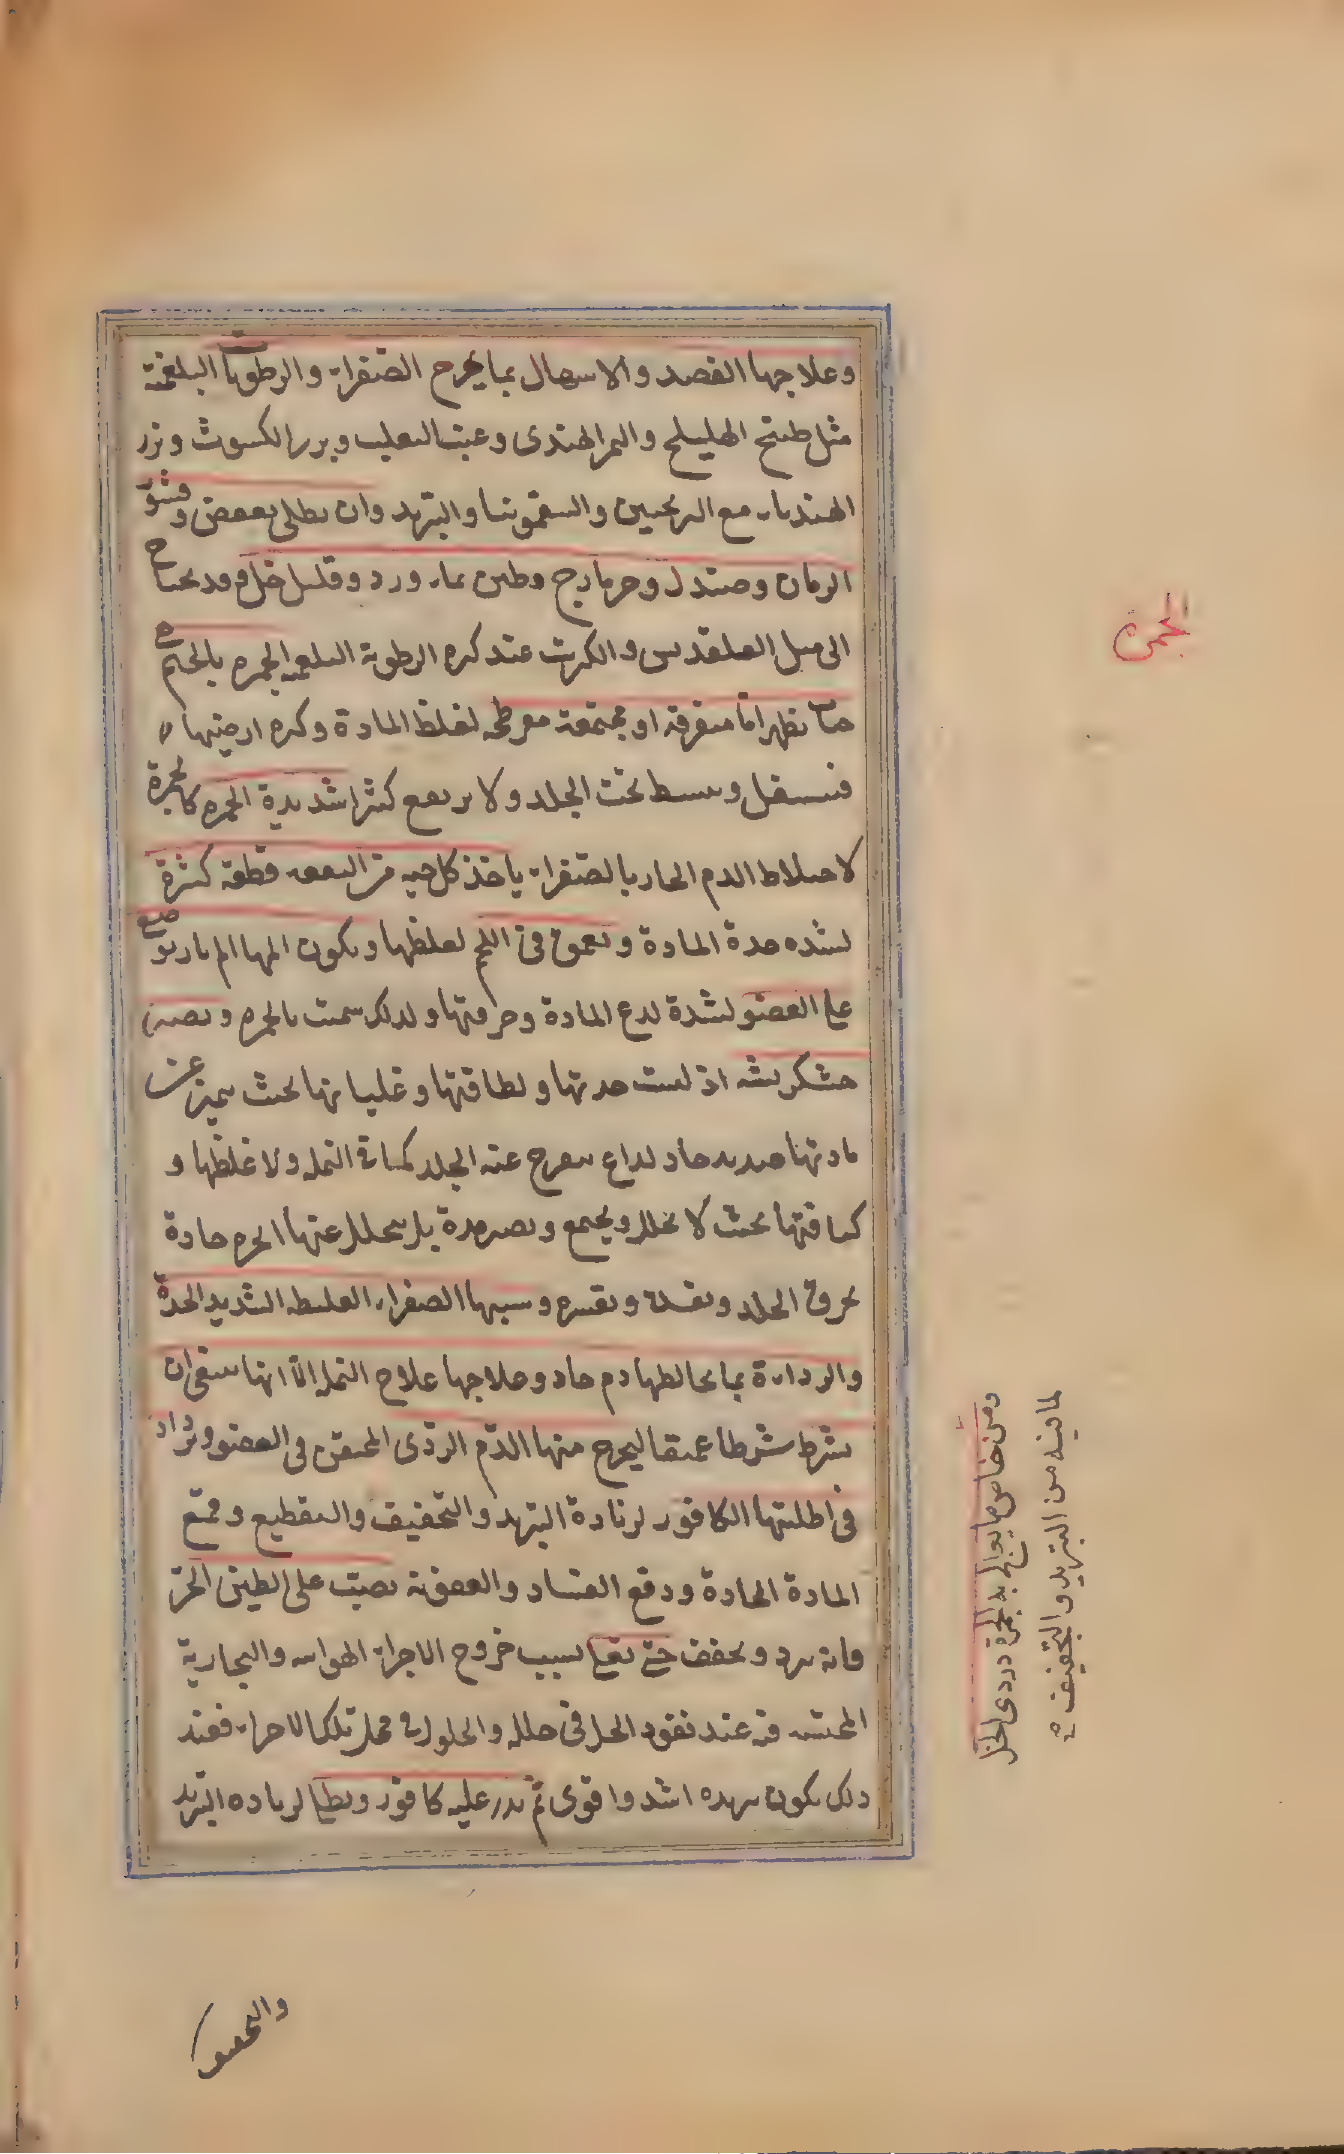 وعلاجها الفصد والاسهال بما يخرج الصفراء والرطوبات البلغمية
مثل طبيخ الهليلج والتمر الهندى وعنب الثعلب وبزر الكسوث وبزر
الهندباء مع الترنجبين والسقمونيا والتربد وان يطلى بعفص وقشور
الرمان وصندل وطين بماء ورد وقليل خل وقد يحتاج
الى مثل القلقديس والكبريت عند كثرة الرطوبة البلغمية الجمرة بالجيم هى
حبات تظهر اما متفرقة او مجتمعة مفرطحة لغلظ المادة وكثرة ارضيتها
فتسفل وتنبسط تحت الجلد ولا يرتفع كثيرا شديدة الحمرة كالجمرة
لاختلاط الدم الحار بالصفراء ياخذ كل حبة من البقعة قطعة كثيرة
لشدة حدة المادة وتعمق فى اللحم لغلظها ويكون المها الم نار توضع
على العضو لشدة لذع المادة وحرقتها ولذلك سميت بالجمرة وتصير
خشكريشة اذ ليست حدتها ولطافتها وغليانها بحيث يتميز عن
مادتها صديد حاد لذاع يتقرح عنه الجلد كما فى النملة ولا غلظها و
كثافتها بحيث لا يتحلل ويجتمع وتصير مدة بل يتحلل عنها ابخرة حادة
يحرق الجلد ويفسده ويقشره وسببها الصفراء الغليظة الشديد الحدة
والرداءة بما يخالطها دم حاد وعلاجها علاج النملة الا انها ينبغى ان
يشرط شرطا عميقا ليخرج منها الدم الردى المحتقن فى العضو ويزاد
فى اطليتها الكافور لزيادة التبريد والتجفيف والتقطيع وقمع
المادة الحادة ودفع الفساد والعفونة يصب على الطين الحر
فانه يبرد ويجفف حتى بسبب خروج الاجزاء الهوائية والبخارية
المحتبسة فيه عند نفوذ الخل فى خلله والحلول فى محل تلك الاجزاء فعند
ذلك يكون تبريده اشد واقوى ثم يذر عليه كافور ويطلى لزيادة التبريد
الجمرة
ومن خاص ما يعالج به الجمرة دردى الخل
لما فيه من التبريد والتجفيف
والتجفيف